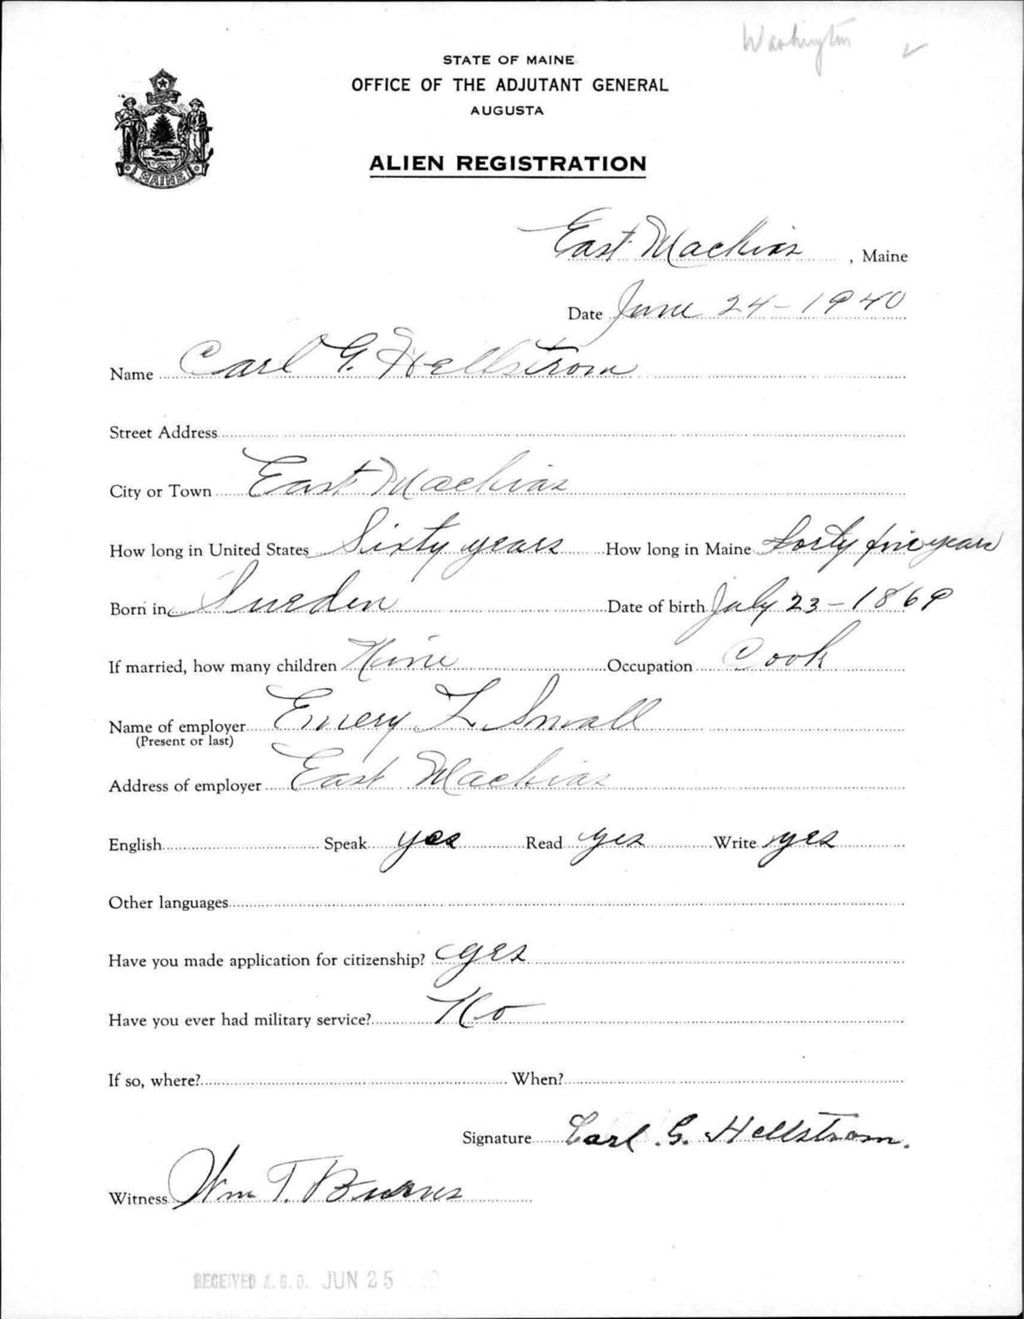 Washington ✓
STATE OF MAINE
OFFICE OF THE ADJUTANT GENERAL
AUGUSTA
ALIEN REGISTRATION
MAINE
East Machias, Maine
Date June 24-1940
Name Carl G. Hellstrom
Street Address
City or Town East Machias
How long in United States Sixty years How long in Maine Forty five years
Born in Sweden Date of birth July 23-1869
If married, how many children Nine Occupation Cook
Name of employer Emery L. Small
(Present or last)
Address of employer East Machias
English Speak yes Read yes Write yes
Other languages
Have you made application for citizenship? yes
Have you ever had military service? No
If so, where? When?
Signature Carl. G. Hellstrom.
Witness Wm T. Burns
RECEIVED A.G.O. JUN 25